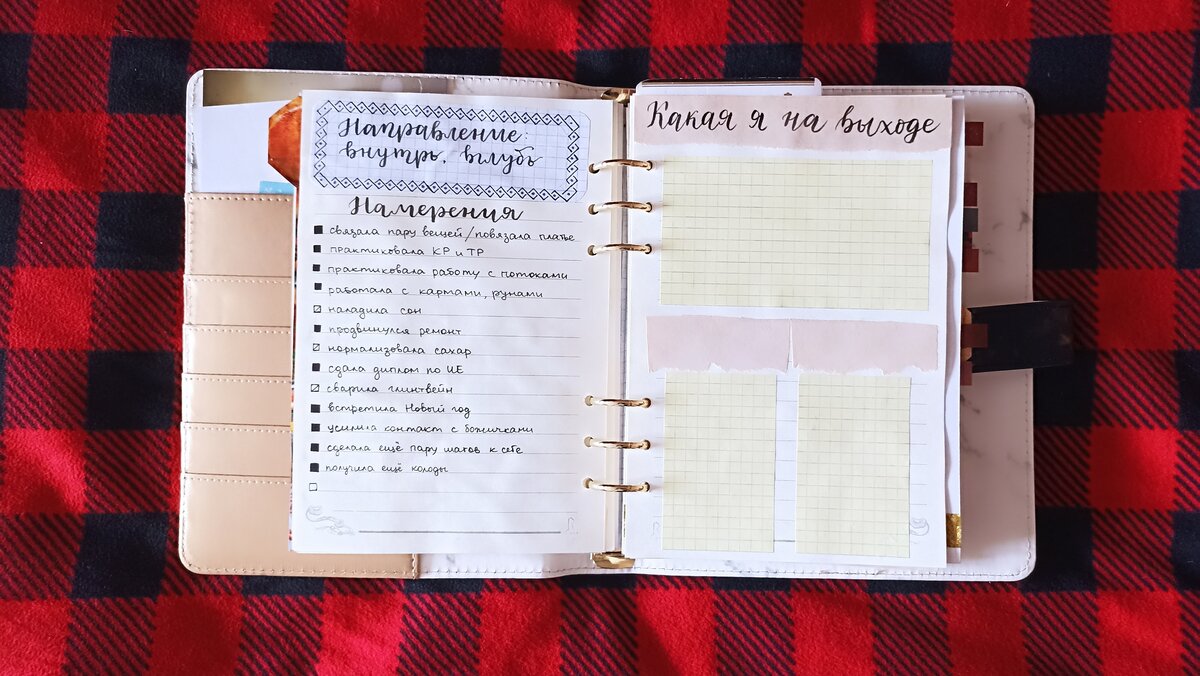 Направление:
внутрь, вглубь
Намерения
связала пару вещей/повязала платье
практиковала КР и ТР
практиковала работу с потоками
работала с картами, рунами
наладила сон
продвинулся ремонт
нормализовала сахар
сдала диплом по ИЕ
сварила глинтвейн
встретила Новый год
усилила контакт с божичками
сделала ещё пару шагов к себе
получила ещё колоды
Какая я на выходе